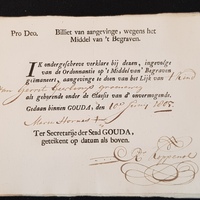 Pro Deo. Billiet van aangevinge, wegens het
Middel van 't Begraven.
IK ondergeschreve verklare bij dezen, ingevolge
van de Ordonnantie op 't Middel van 't Begraven
geëmaneert, aangeving te doen van het Lijk van 't Kind
van Gerrit
als gehorende onder de Classis van d' onvermogende.
Gedaan binnen GOUDA, den 10e Juny 1805.
Ter Secretarije der Stad GOUDA,
geteikent op datum als boven.